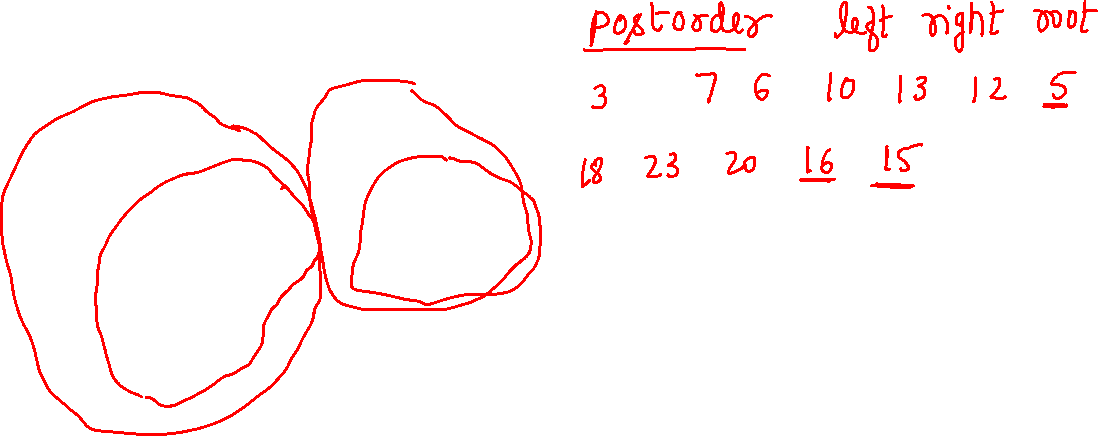 postorder left right root
3 7 6 10 13 12 5
18 23 20 16 15